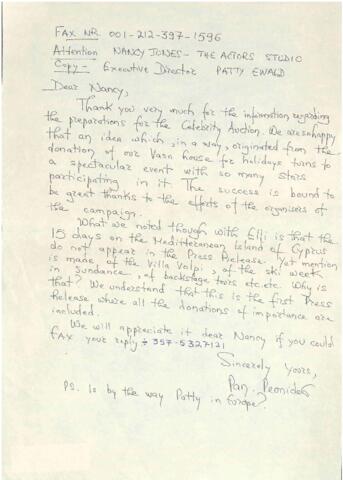 FAX NR 001-212-397-1596
Attention NANCY JONES - THE ACTORS STUDIO
Copy - Executive Director PATTY EWALD
Dear Nancy,
Thank you very much for the information regarding
the preparations for the Celebrity Auction. We are so happy
that an idea which, in a way, originated from the
donation of our Vasa house for holidays turns to
a spectacular event with so many stars
participating in it. The success is bound to
be great thanks to the efforts of the organisers of
the campaign.
What we noted though with Elli is that the
15 days on the Mediterranean Island of Cyprus
do not appear in the Press Release. Yet mention
is made, of the Villa Volpi, of the ski week
in Sundance, of backstage tours etc. etc. Why is
that? We understand that this is the first Press
Release where all the donations of importance are
included.
We will appreciate it dear Nancy if you could
FAX your reply 357-5327121
Sincerely yours,
Pan. Peonides
PS. Is by the way Patty in Europe?